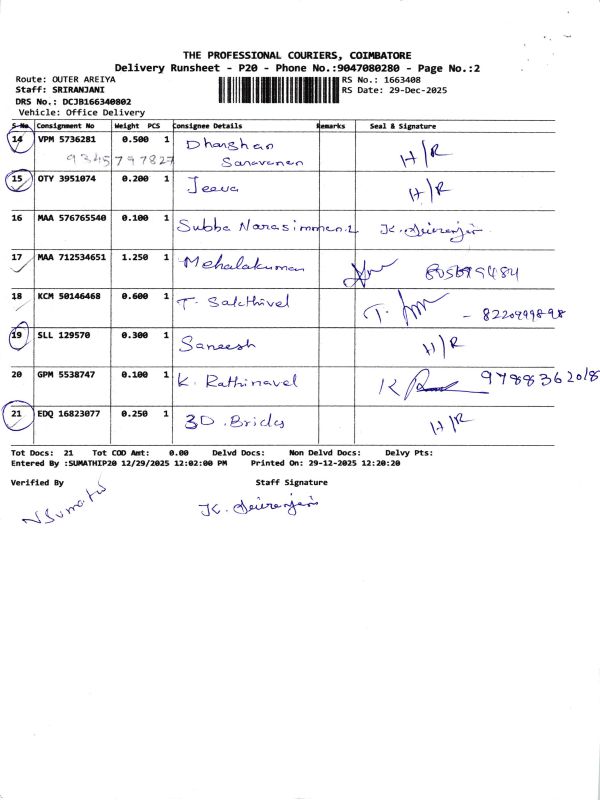 THE PROFESSIONAL COURIERS, COIMBATORE
Delivery Runsheet - P20 - Phone No.:9047080280 - Page No.:2
Route: OUTER AREIYA
RS No.: 1663408
Staff: SRIRANJANI
RS Date: 29-Dec-2025
DRS No.: DCJB166340802
Vehicle: Office Delivery
S No. Consignment No Weight PCS Consignee Details Remarks Seal & Signature
14 VPM 5736281 0.500 1 Dharshan H/R
9345797827 Saravanan
15 OTY 3951074 0.200 1 Jeeva H/R
16 MAA 576765540 0.100 1 Subba Narasimman.L
17 MAA 712534651 1.250 1 Mehalakuman
18 KCM 50146468 0.600 1 T. Sakthivel T.
19 SLL 129570 0.300 1 Saneesh H/R
20 GPM 5538747 0.100 1 K. Rathinavel K 9788362018
21 EDQ 16823077 0.250 1 3D. Brides H/R
Tot Docs: 21 Tot COD Amt: 0.00 Delvd Docs: Non Delvd Docs: Delvy Pts:
Entered By :SUMATHIP20 12/29/2025 12:02:00 PM Printed On: 29-12-2025 12:20:20
Verified By Staff Signature
N Sumathi